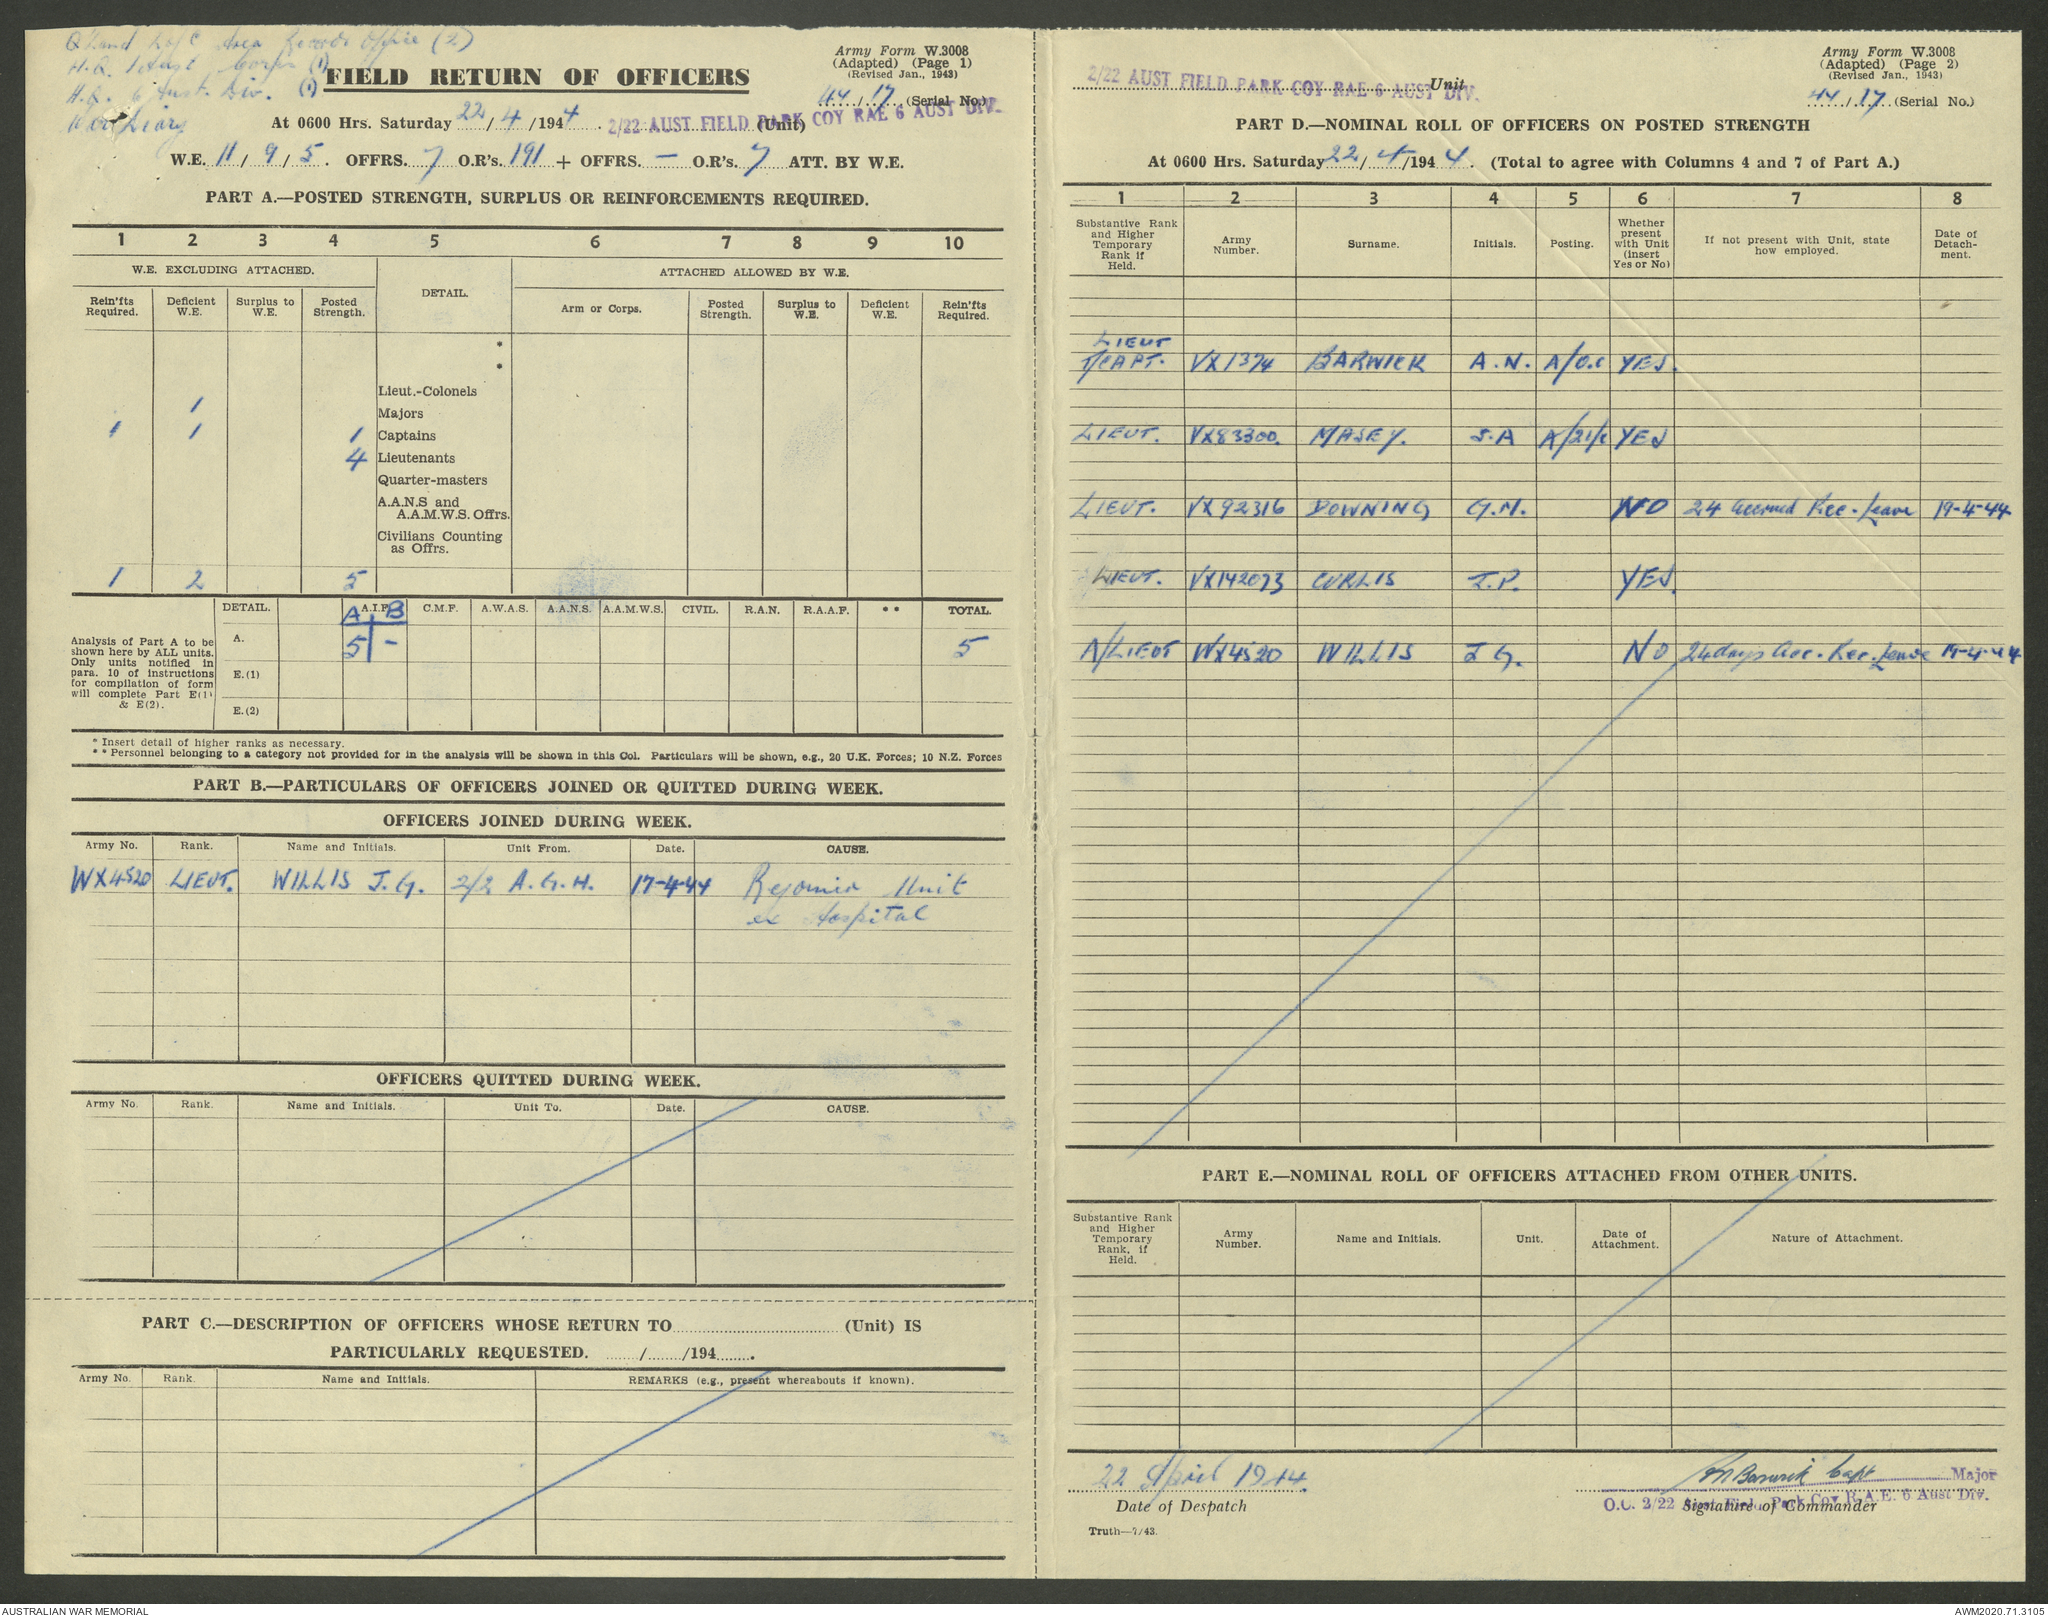 Q'land L of C Area Records Office (2)
H.Q. 1 Aust Corps (1)
H.Q. 6 Aust. Div. (1)
War Diary
Army Form W.3008
(Adapted) (Page 1)
(Revised Jan., 1943)
FIELD RETURN OF OFFICERS
44 / 17 (Serial No.)
At 0600 Hrs. Saturday 22 / 4 / 1944 . 2/22 AUST FIELD PARK COY RAE 6 AUST DIV. (Unit)
W.E. 11 / 9 / 5. OFFRS. 7 O.R's. 191 + OFFRS. — O.R's. 7 ATT. BY W.E.
PART A.—POSTED STRENGTH, SURPLUS OR REINFORCEMENTS REQUIRED.
1 2 3 4 5 6 7 8 9 10
W.E. EXCLUDING ATTACHED. DETAIL. ATTACHED ALLOWED BY W.E.
Rein'fts Required. Deficient W.E. Surplus to W.E. Posted Strength. Arm or Corps. Posted Strength. Surplus to W.E. Deficient W.E. Rein'fts Required.
*
*
Lieut.-Colonels
1 Majors
1 1 1 Captains
4 Lieutenants
Quarter-masters
A.A.N.S and
A.A.M.W.S. Offrs.
Civilians Counting
as Offrs.
1 2 5
DETAIL. A.I.F. C.M.F. A.W.A.S. A.A.N.S. A.A.M.W.S. CIVIL. R.A.N. R.A.A.F. ** TOTAL.
A B
Analysis of Part A to be
shown here by ALL units.
Only units notified in
para. 10 of instructions
for compilation of form
will complete Part E(1)
& E(2).
A. 5 - 5
E.(1)
E.(2)
* Insert detail of higher ranks as necessary.
** Personnel belonging to a category not provided for in the analysis will be shown in this Col. Particulars will be shown, e.g., 20 U.K. Forces; 10 N.Z. Forces
PART B.—PARTICULARS OF OFFICERS JOINED OR QUITTED DURING WEEK.
OFFICERS JOINED DURING WEEK.
Army No. Rank. Name and Initials. Unit From. Date. CAUSE.
WX4520 LIEUT. WILLIS J.G. 2/2 A.G.H. 17-4-44 Rejoined Unit
ex Hospital
OFFICERS QUITTED DURING WEEK.
Army No. Rank. Name and Initials. Unit To. Date. CAUSE.
PART C.—DESCRIPTION OF OFFICERS WHOSE RETURN TO (Unit) IS
PARTICULARLY REQUESTED. / /194 .
Army No. Rank. Name and Initials. REMARKS (e.g., present whereabouts if known).
Army Form W.3008
(Adapted) (Page 2)
(Revised Jan., 1943)
2/22 AUST FIELD PARK COY RAE 6 AUST DIV. Unit
44 / 17 (Serial No.)
PART D.—NOMINAL ROLL OF OFFICERS ON POSTED STRENGTH
At 0600 Hrs. Saturday 22 / 4 /194 4. (Total to agree with Columns 4 and 7 of Part A.)
1 2 3 4 5 6 7 8
Substantive Rank and Higher Temporary Rank if Held. Army Number. Surname. Initials. Posting. Whether present with Unit (insert Yes or No) If not present with Unit, state how employed. Date of Detachment.
LIEUT
T/CAPT. VX1374 BARWICK A.N. A/O.C YES.
LIEUT. VX83300. MASEY. S.A A/2i/c YES
LIEUT. VX92316 DOWNING G.M. NO 24 accrued Rec. Leave 19-4-44
LIEUT. VX142073 CURLIS I.P. YES.
A/LIEUT WX4520 WILLIS J.G. NO 24 days Acc. Rec. Leave 19-4-44
PART E.—NOMINAL ROLL OF OFFICERS ATTACHED FROM OTHER UNITS.
Substantive Rank and Higher Temporary Rank, if Held. Army Number. Name and Initials. Unit. Date of Attachment. Nature of Attachment.
22 April 1944. AN Barwick Capt Major
O.C. 2/22 Aust. Field Park Coy R.A.E. 6 Aust Div.
Date of Despatch Signature of Commander
Truth—7/43.
AUSTRALIAN WAR MEMORIAL AWM2020.71.3105